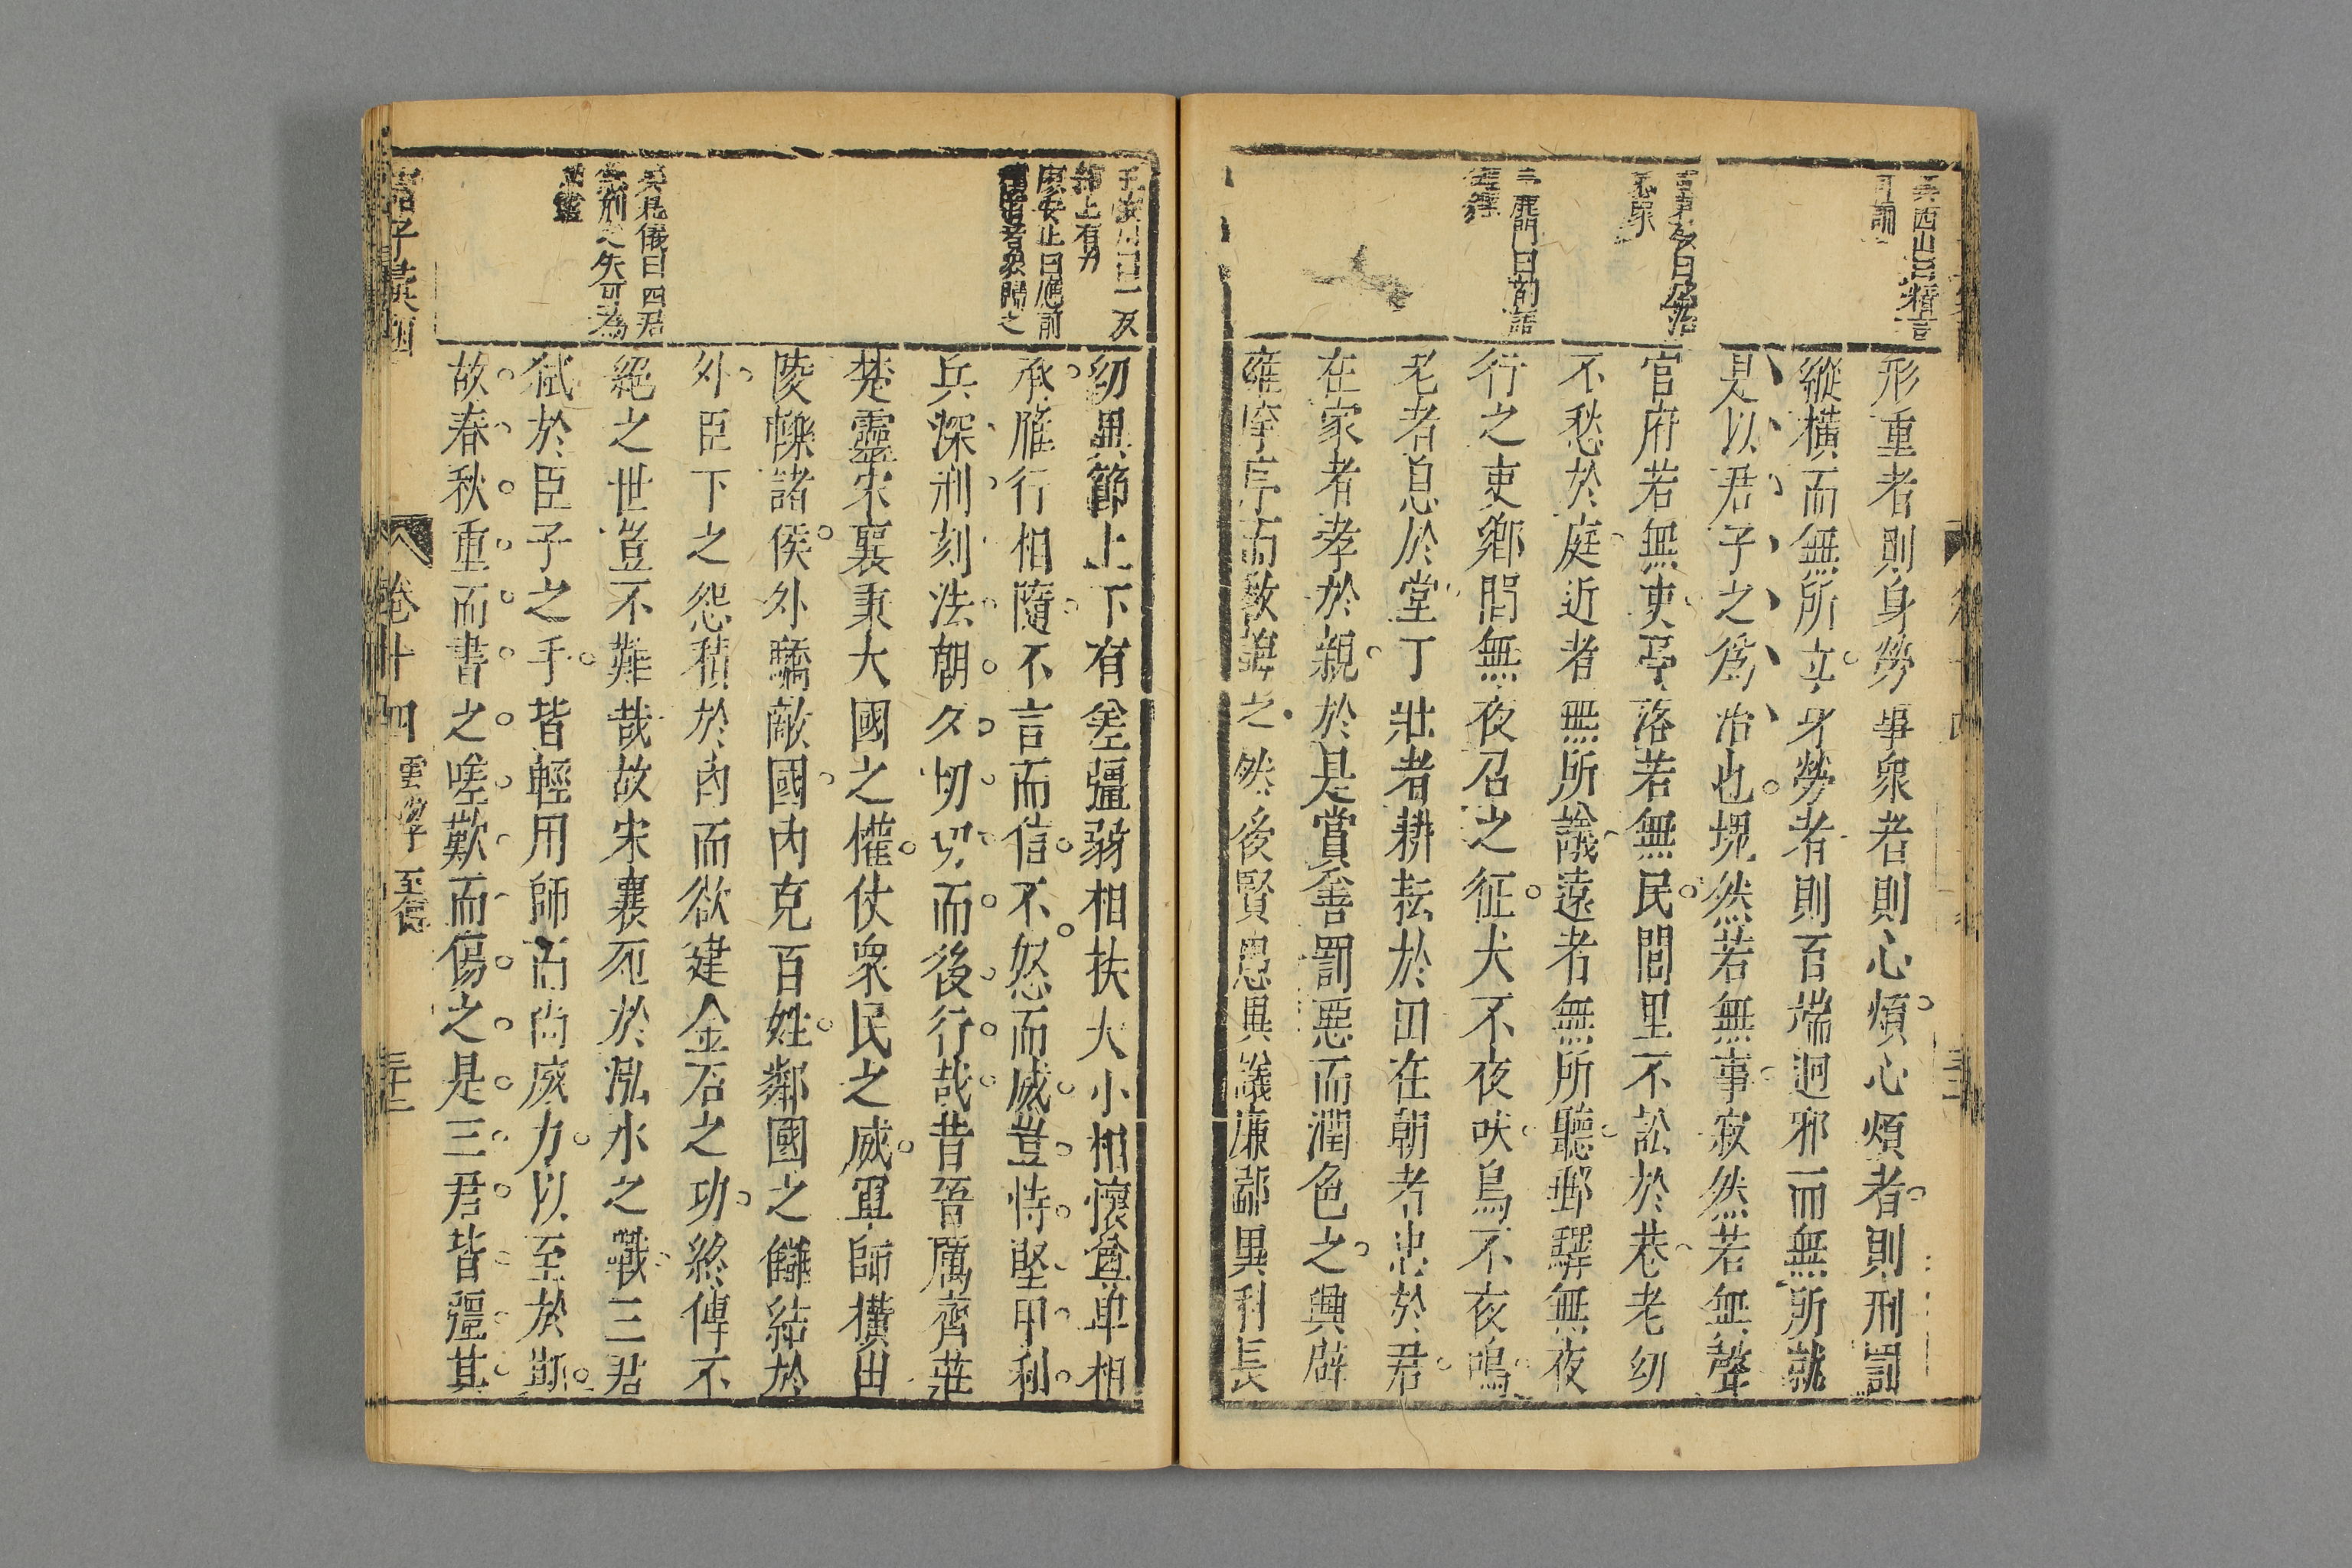 眞西山曰精言
可誦
不眾
王鹿門曰韵語
形重者則身勞事衆者則心煩心煩者則刑罰
縱橫而無所立身勞者則百端迴邪而無所就
是以君子之爲治也塊然若無事寂然若無聲
官府若無吏亭落若無民閭里不訟於巷老幼
不愁於庭近者無所議遠者無所聽郵驛無夜
行之吏鄉閭無夜召之征犬不夜吠烏不夜鳴
老者息於堂丁壯者耕耘於田在朝者忠於君
在家者孝於親於是賞善罰惡而潤色之興辟
雍庠序而教誨之然後賢愚異議廉鄙異科長
幼異節上下有差彊弱相扶大小相懷尊卑相
承鴈行相隨不言而信不怒而威豈恃堅甲利
兵深刑刻法朝夕切切而後行哉昔晉厲齊莊
楚靈宋襄秉大國之權仗衆民之威軍師橫出
陵轢諸侯外驕敵國內克百姓鄰國之讎結於
外臣下之怨積於內而欲建金石之功終傳不
絕之世豈不難哉故宋襄死於泓水之戰三君
弒於臣子之手皆輕用師而尚威力以至於斯
故春秋重而書之嗟歎而傷之是三君皆彊其
補上有力
康安止曰應前
吳化儀曰四君
刻之失可為
諸子彙函
卷十四
雲陽子
至德